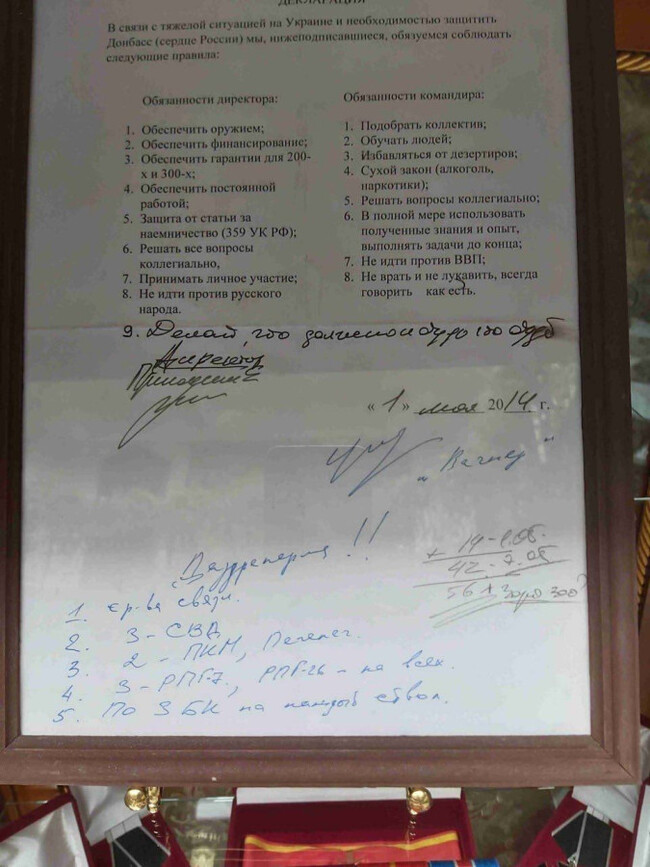 ДЕКЛАРАЦИЯ
В связи с тяжелой ситуацией на Украине и необходимостью защитить
Донбасс (сердце России) мы, нижеподписавшиеся, обязуемся соблюдать
следующие правила:
Обязанности директора:
1. Обеспечить оружием;
2. Обеспечить финансирование;
3. Обеспечить гарантии для 200-
х и 300-х;
4. Обеспечить постоянной
работой;
5. Защита от статьи за
наемничество (359 УК РФ);
6. Решать все вопросы
коллегиально,
7. Принимать личное участие;
8. Не идти против русского
народа.
Обязанности командира:
1. Подобрать коллектив;
2. Обучать людей;
3. Избавляться от дезертиров;
4. Сухой закон (алкоголь,
наркотики);
5. Решать вопросы коллегиально;
6. В полной мере использовать
полученные знания и опыт,
выполнять задачи до конца;
7. Не идти против ВВП;
8. Не врать и не лукавить, всегда
говорить как есть.
9. Делай, что должно и будь что будет
Директор
Пригожин
« 1 » мая 2014 г.
„ Вагнер "
!!
1. ср-ва связи.
2. 3 - СВД
3. 2 - ПКМ, Печенег.
4. 3 - РПГ-7, РПГ-26 - на всех.
5. По 3 БК на каждый ствол.